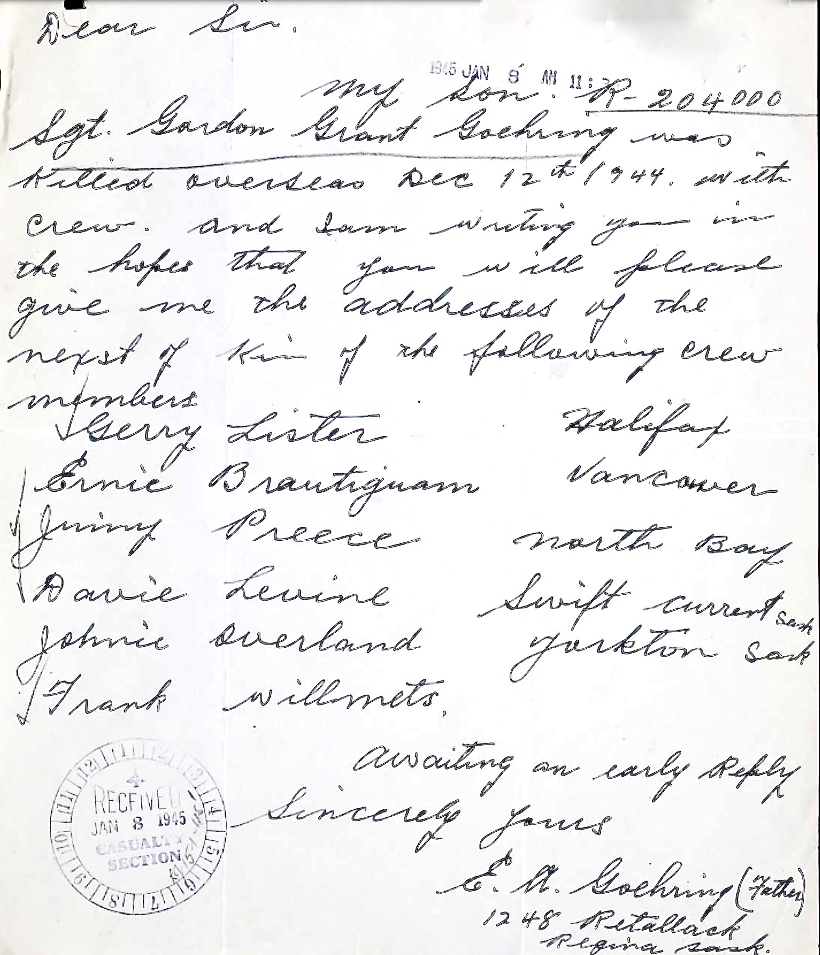 Dear Sir.
1945 JAN 8 AM 11:
My Son. R-204000
Sgt. Gordon Grant Goehring was
Killed overseas Dec 12th 1944. with
crew. and I am writing you in
the hopes that you will please
give me the addresses of the
next of Kin of the following crew
members
Gerry Lister Halifax
Ernie Brautiguam Vancouver
Jimmy Preece North Bay
Davie Levine Swift Current Sask
Johnie Overland Yorkton Sask
Frank Willmets.
Awaiting an early Reply
Sincerely Yours
E. A. Goehring (Father)
1248 Retallack
Regina Sask.
12 1 2 3 4 5 6 7 8 9 10 11
RECEIVED
JAN 8 1945
CASUALTY
SECTION